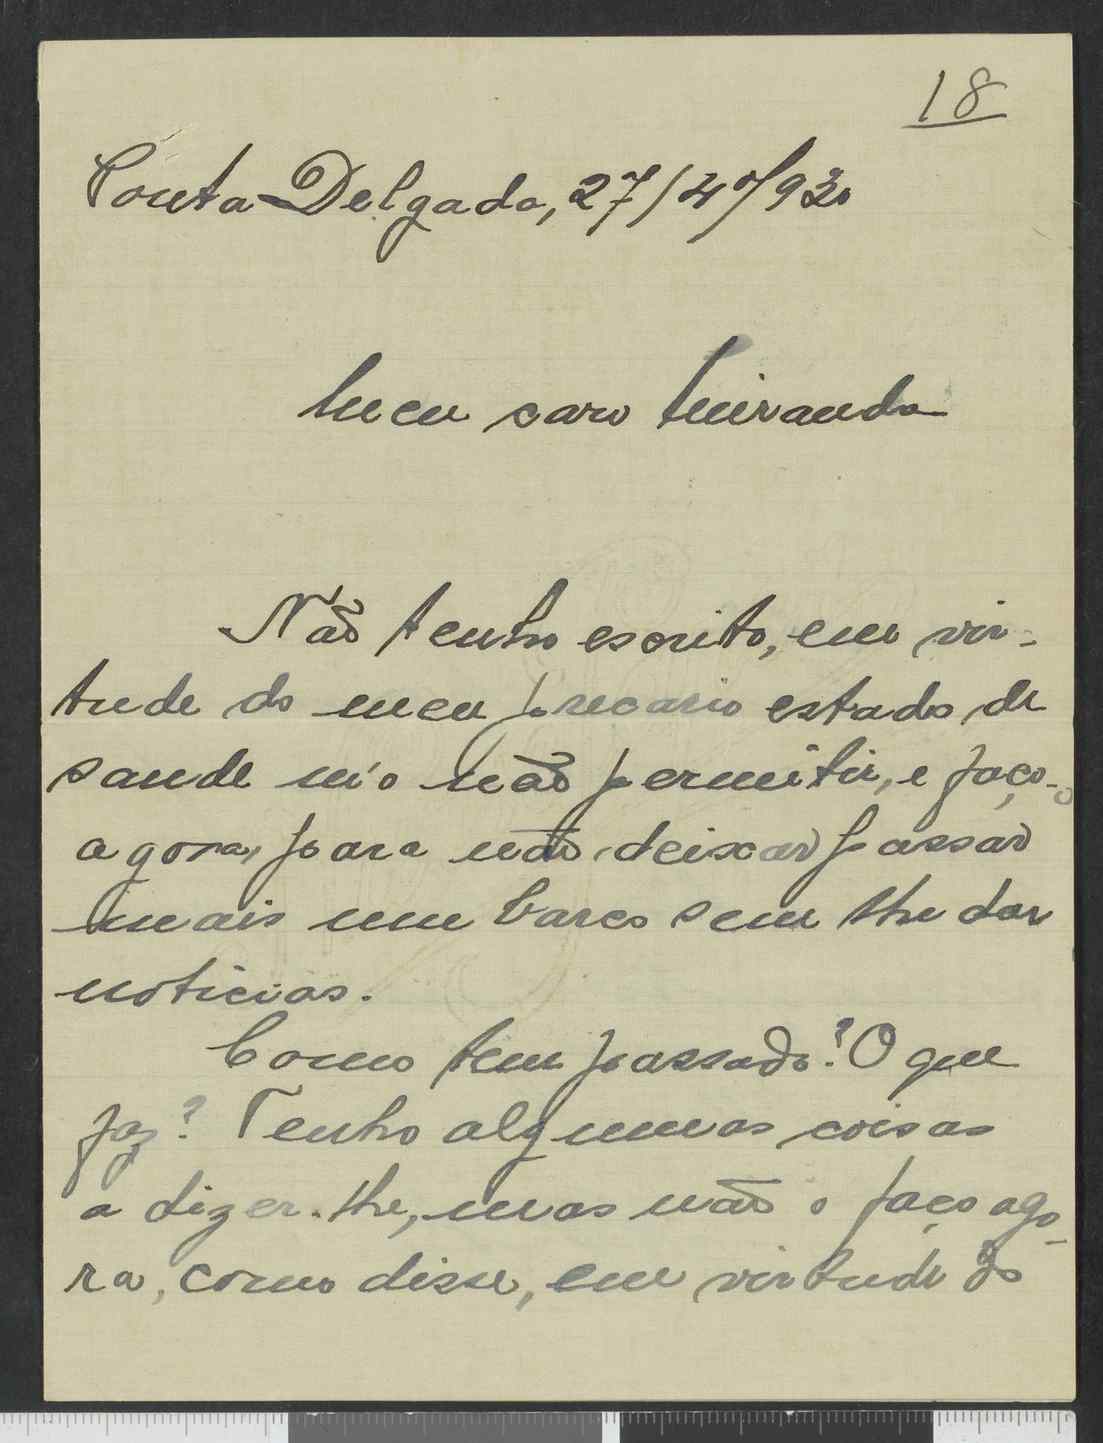 18
Ponta Delgada, 27/4º/930
Meu caro Miranda
Não tenho escrito, em vir-
tude do meu precario estado de
saude m'o não permitir, e faço-o
agora, para não deixar passar
mais um barco sem lhe dar
noticias.
Como tem passado? O que
faz? Tenho algumas coisas
a dizer-lhe, mas não o faço ago-
ra, como disse, em virtude do